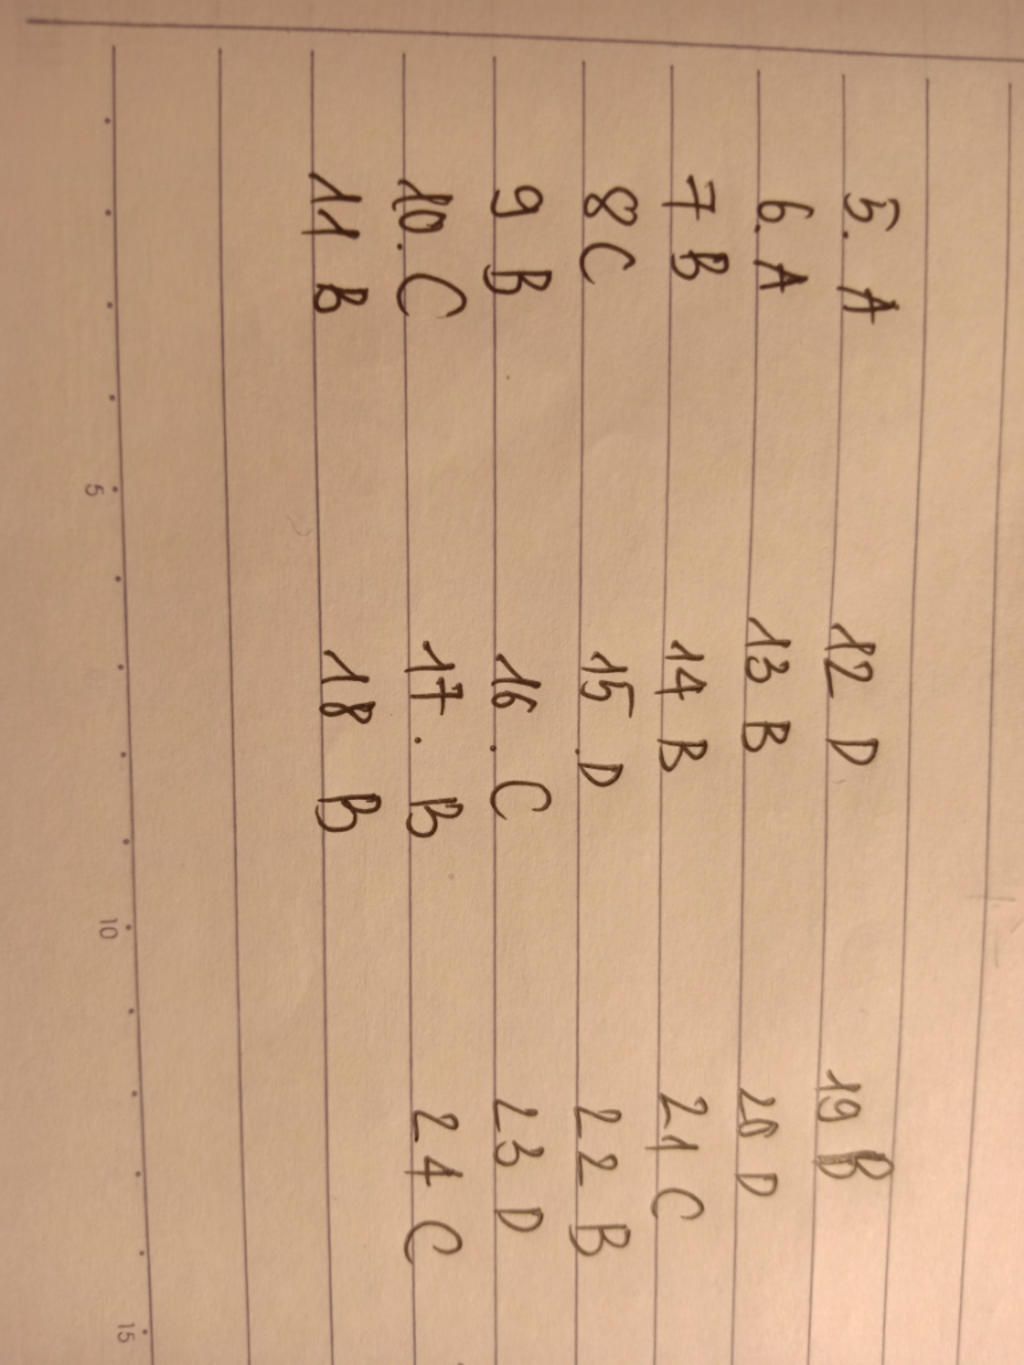 5. A
6. A
7 B
8 C
9 B
10. C
11 B
12 D
13 B
14 B
15. D
16. C
17. B
18 B
19 B
20 D
21 C
22 B
23 D
24 C
5
10
15